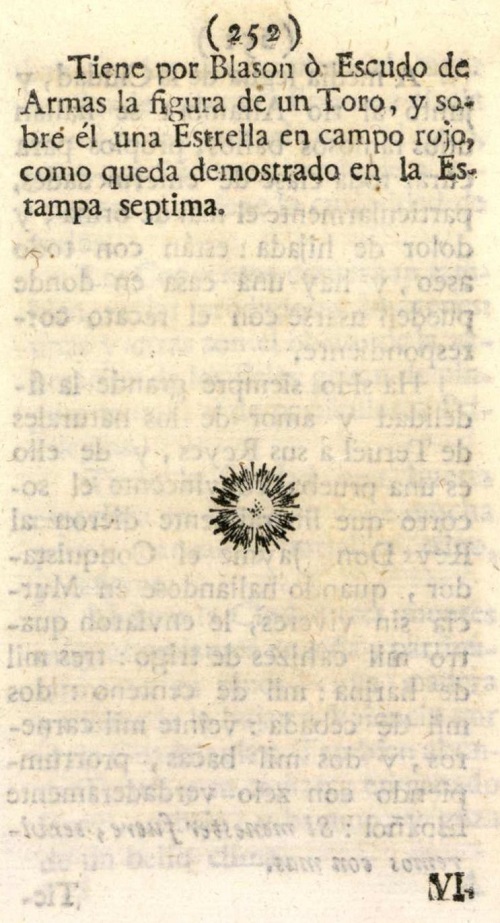 (252)
Tiene por Blason ò Escudo de
Armas la figura de un Toro, y so-
bre él una Estrella en campo rojo,
como queda demostrado en la Es-
tampa septima.
VI.